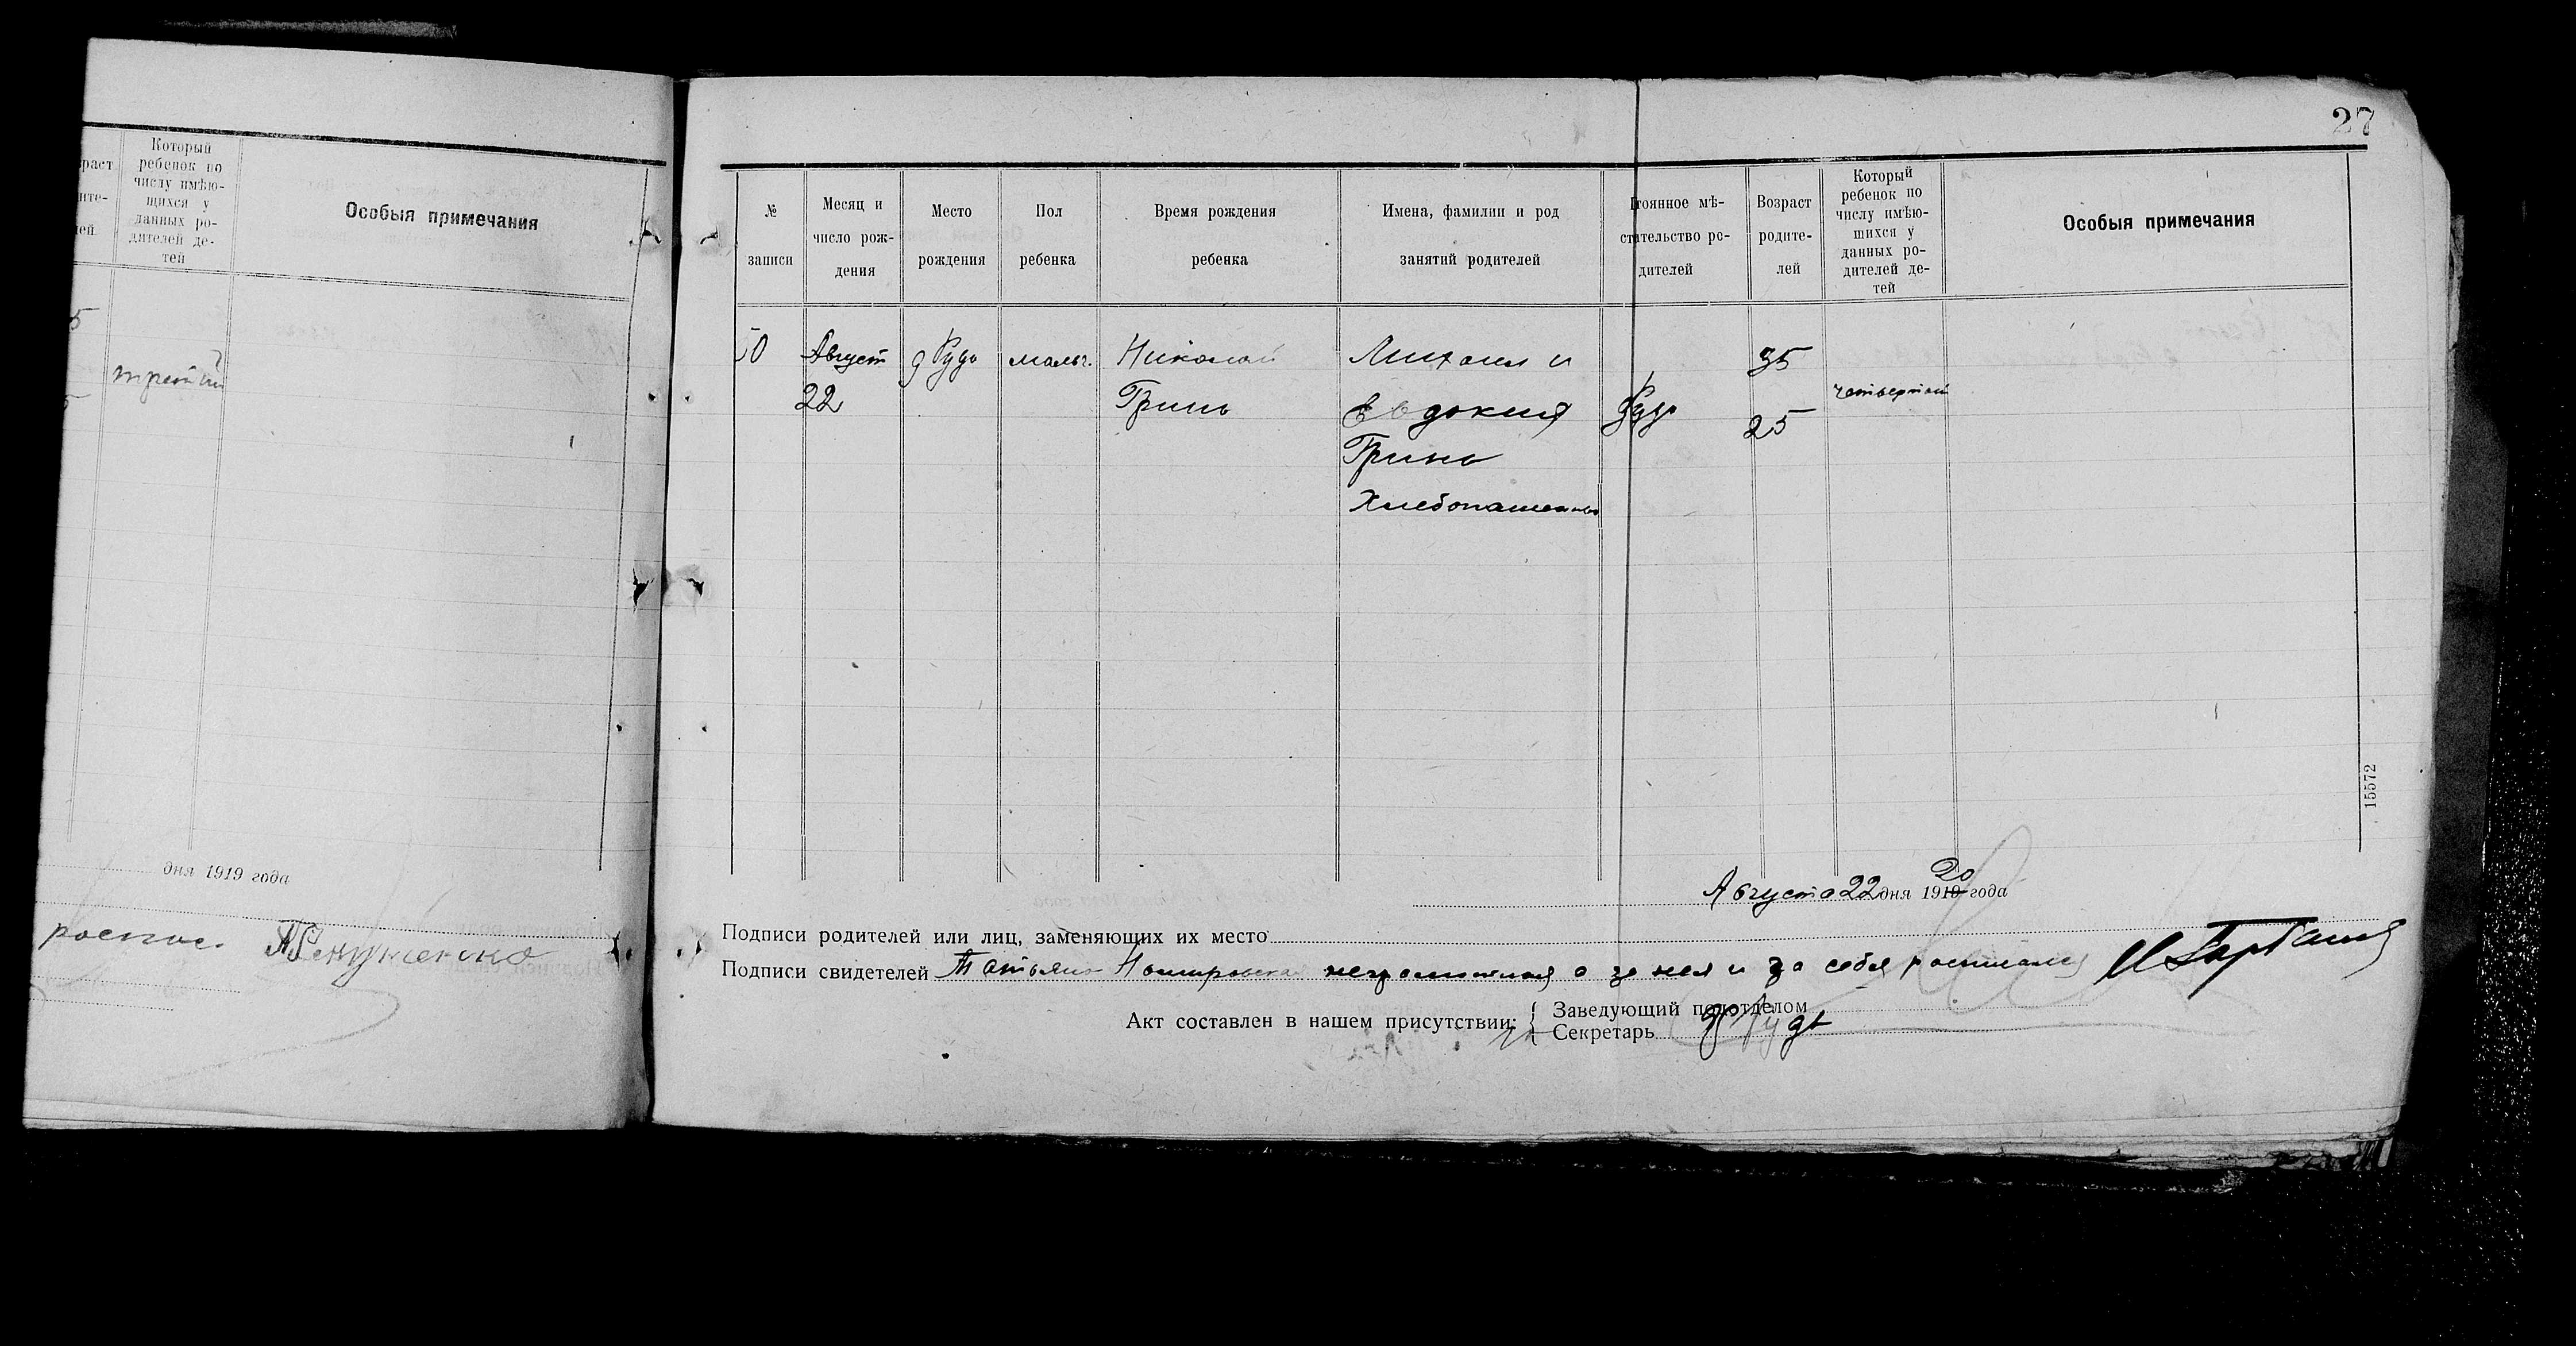 27
Который
ребенок по
числу имѣю-
щихся у
данных ро-
дителей де-
тей
Особыя примечания
третий
дня 1919 года
роспис.
№
записи
Месяц и
число рож-
дения
Место
рождения
Пол
ребенка
Время рождения
ребенка
Имена, фамилии и род
занятий родителей
тоянное мѣ-
стательство ро-
дителей
Возраст
родите-
лей
Который
ребенок по
числу имѣю-
шихся у
данных ро-
дителей де-
тей
Особыя примечания
50 Август д Рудо мальч. Николай Михаил и 35
22 Гринь Евдокия Рудо 25 четвертый
Гринь
Хлебопашество
15572
Августа 22 дня 1919 20 года
Подписи родителей или лиц, заменяющих их место
Подписи свидетелей Татьяна неграмотная а за нея и за себя росписался
Акт составлен в нашем присутствии: Заведующий подотделом
Секретарь